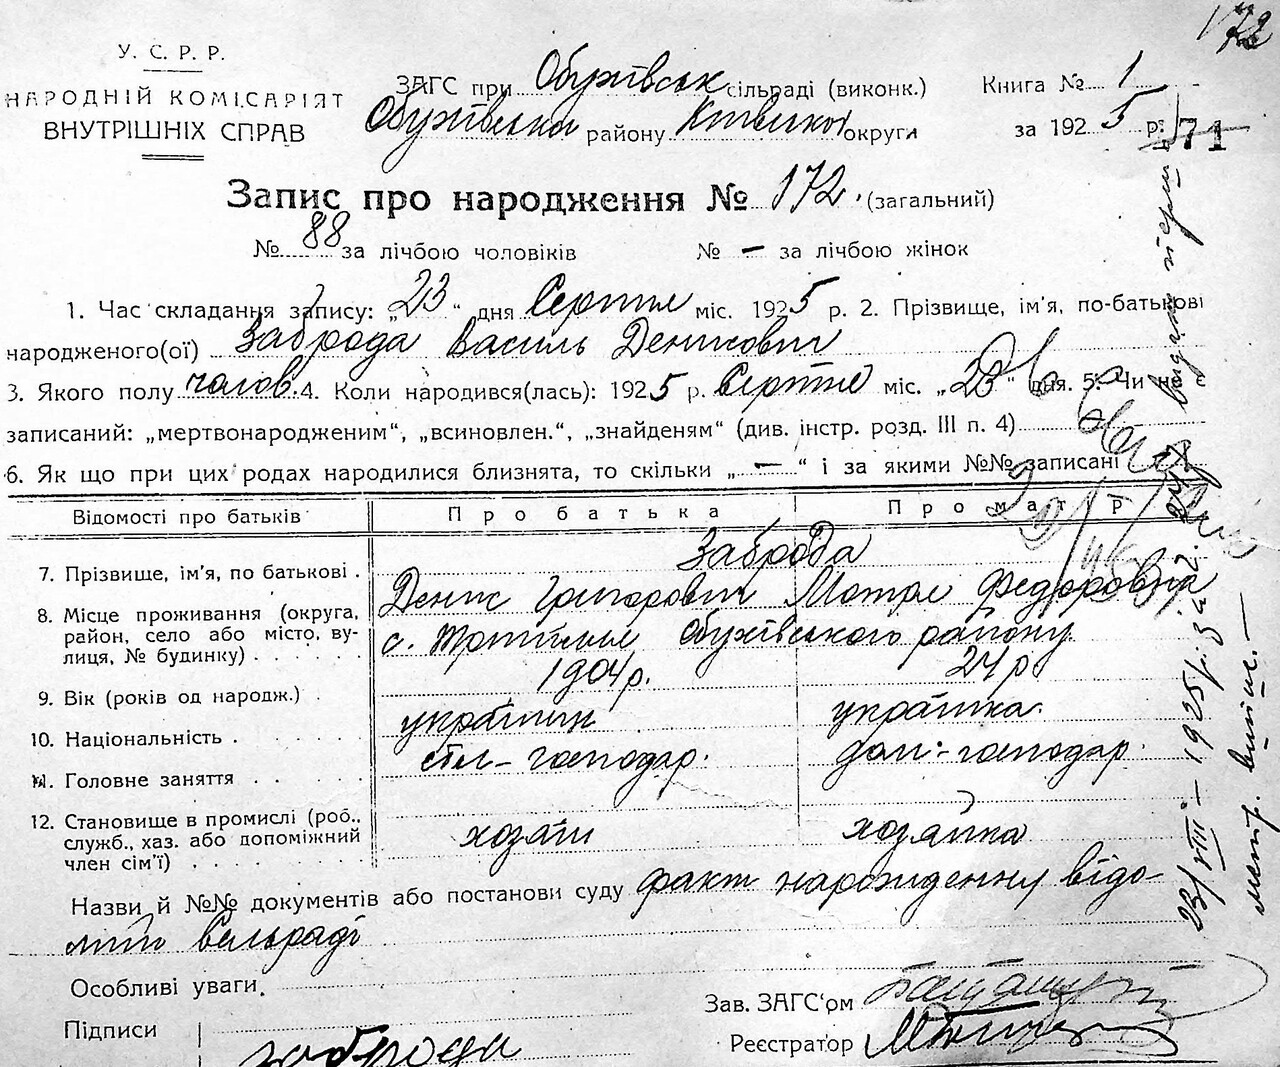 172
У. С. Р. Р.
НАРОДНІЙ КОМІСАРІЯТ
ВНУТРІШНІХ СПРАВ
ЗАГС при Обухівськ сільраді (виконк.)
Обухівського району Київської округи
Книга № 1
за 1925 р.
171
Запис про народження № 172. (загальний)
№ 88 за лічбою чоловіків № — за лічбою жінок
1. Час складання запису: „23" дня Серпня міс. 1925 р. 2. Прізвище, ім'я, по-батькові
народженого(ої) Заброда Василь Денисович
3. Якого полу чолов. 4. Коли народився(лась): 1925 р. Серпня міс. „23" дня. 5. Чи не є
записаний: „мертвонародженим", „всиновлен.", „знайденям" (див. інстр. розд. III п. 4)
6. Як що при цих родах народилися близнята, то скільки „ — " і за якими №№ записані
Відомості про батьків Про батька Про матір
7. Прізвище, ім'я, по батькові . Заброда
Денис Григорович Мотря Федоровна
8. Місце проживання (округа, район, село або місто, ву-лиця, № будинку) с. Трипілля Обухівського району
9. Вік (років од народж.) . 1904 р. 24 р
10. Національність . українин українка.
11. Головне заняття . . . . сіл-господар. дом-господар.
12. Становище в промислі (роб., служб., хаз. або допоміжний член сім'ї) хозяїн хозяйка
Назви й №№ документів або постанови суду факт народження відо-
мий Сельраді
Особливі уваги.
Зав. ЗАГС'ом
Підписи Заброда
Реєстратор
23/VIII – 1925 р.